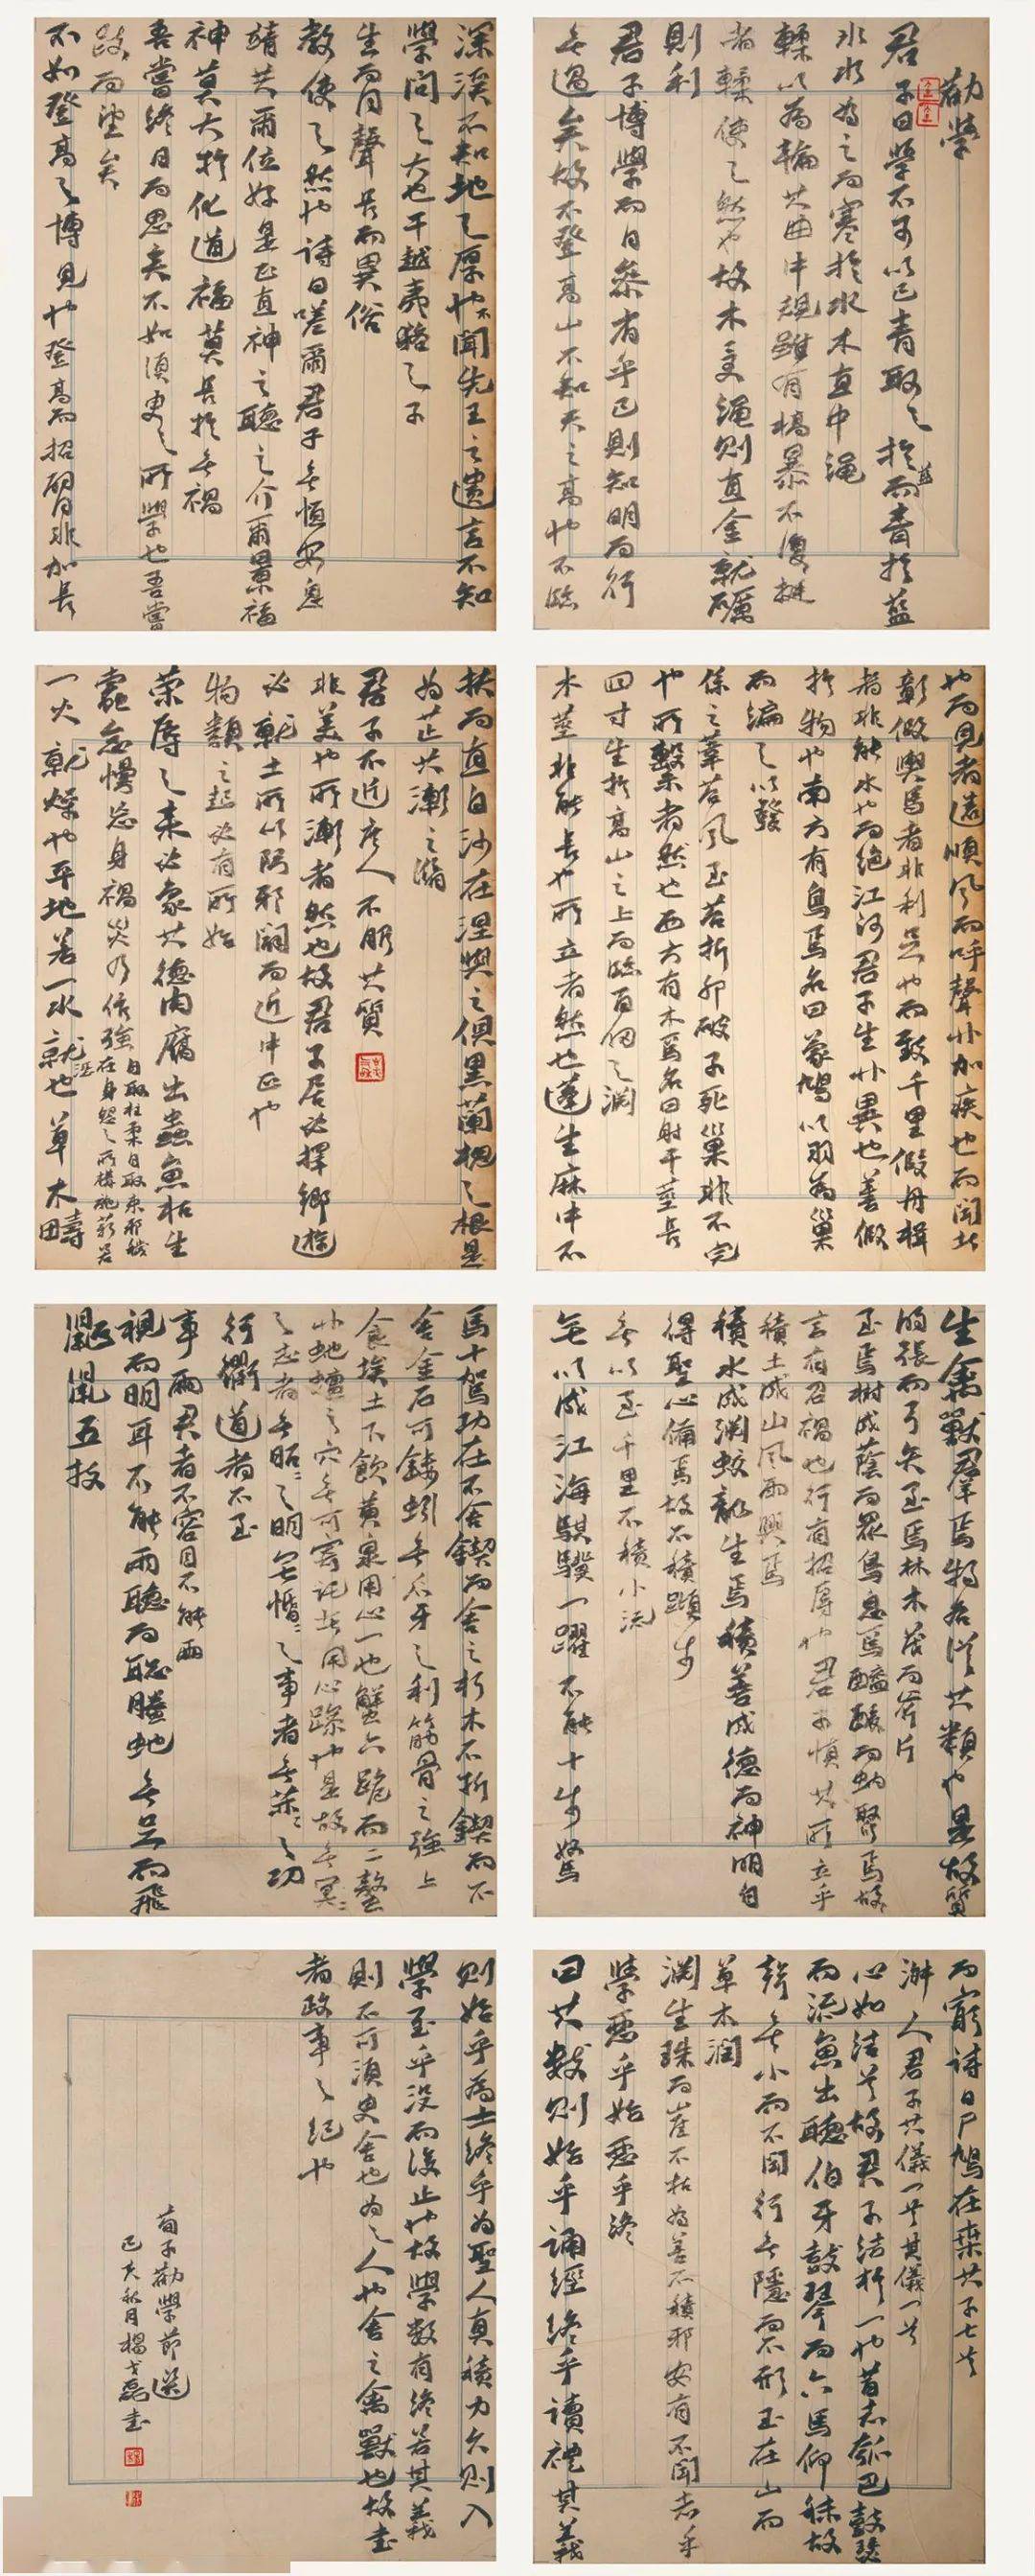 勸學
君子曰學不可以已青取之於藍而青於藍
冰水為之而寒於水木直中繩
輮以為輪其曲中規雖有槁暴不復挺
者輮使之然也故木受繩則直金就礪
則利
君子博學而日參省乎己則知明而行
無過矣故不登高山不知天之高也不臨
深溪不知地之厚也不聞先王之遺言不知
學問之大也干越夷貉之子
生而同聲長而異俗
教使之然也詩曰嗟爾君子無恒安息
靖共爾位好是正直神之聽之介爾景福
神莫大於化道福莫長於無禍
吾嘗終日而思矣不如須臾之所學也吾嘗
跂而望矣
不如登高之博見也登高而招臂非加長
也而見者遠順風而呼聲非加疾也而聞者
彰假輿馬者非利足也而致千里假舟楫
者非能水也而絕江河君子生非異也善假
於物也南方有鳥焉名曰蒙鳩以羽為巢
而編之以髮
係之葦苕風至苕折卵破子死巢非不完
也所繫者然也西方有木焉名曰射干莖長
四寸生於高山之上而臨百仞之淵
木莖非能長也所立者然也蓬生麻中不
扶而直白沙在涅與之俱黑蘭槐之根是
為芷其漸之滫
君子不近庶人不服其質
非美也所漸者然也故君子居必擇鄉遊
必就士所以防邪闢而近中正也
物類之起必有所始
榮辱之來必象其德肉腐出蟲魚枯生
蠹怠慢忘身禍災乃作強自取柱柔自取束邪穢在身怨之所構施薪若
一火就燥也平地若一水就濕也草木疇
生禽獸群焉物各從其類也是故質
的張而弓矢至焉林木茂而斧斤
至焉樹成蔭而眾鳥息焉醯酸而蚋聚焉故
言有召禍也行有招辱也君子慎其所立乎
積土成山風雨興焉
積水成淵蛟龍生焉積善成德而神明自
得聖心備焉故不積蹞步
無以至千里不積小流
無以成江海騏驥一躍不能十步駑
馬十駕功在不舍鍥而舍之朽木不折鍥而不
舍金石可鏤蚓無爪牙之利筋骨之強上
食埃土下飲黃泉用心一也蟹六跪而二螯
非蛇蟺之穴無可寄託者用心躁也是故無冥冥
之志者無昭昭之明無惛惛之事者無赫赫之功
行衢道者不至
事兩君者不容目不能兩
視而明耳不能兩聽而聰螣蛇無足而飛
鼫鼠五技
而窮詩曰尸鳩在桑其子七兮
淑人君子其儀一兮其儀一兮
心如結兮故君子結於一也昔者瓠巴鼓瑟
而流魚出聽伯牙鼓琴而六馬仰秣故
聲無小而不聞行無隱而不形玉在山而
草木潤
淵生珠而崖不枯為善不積邪安有不聞者乎
學惡乎始惡乎終
曰其數則始乎誦經終乎讀禮其義
則始乎為士終乎為聖人真積力久則入
學至乎沒而後止也故學數有終若其義
則不可須臾舍也為之人也舍之禽獸也故書
者政事之紀也
荀子勸學節選
己亥秋月楊磊書